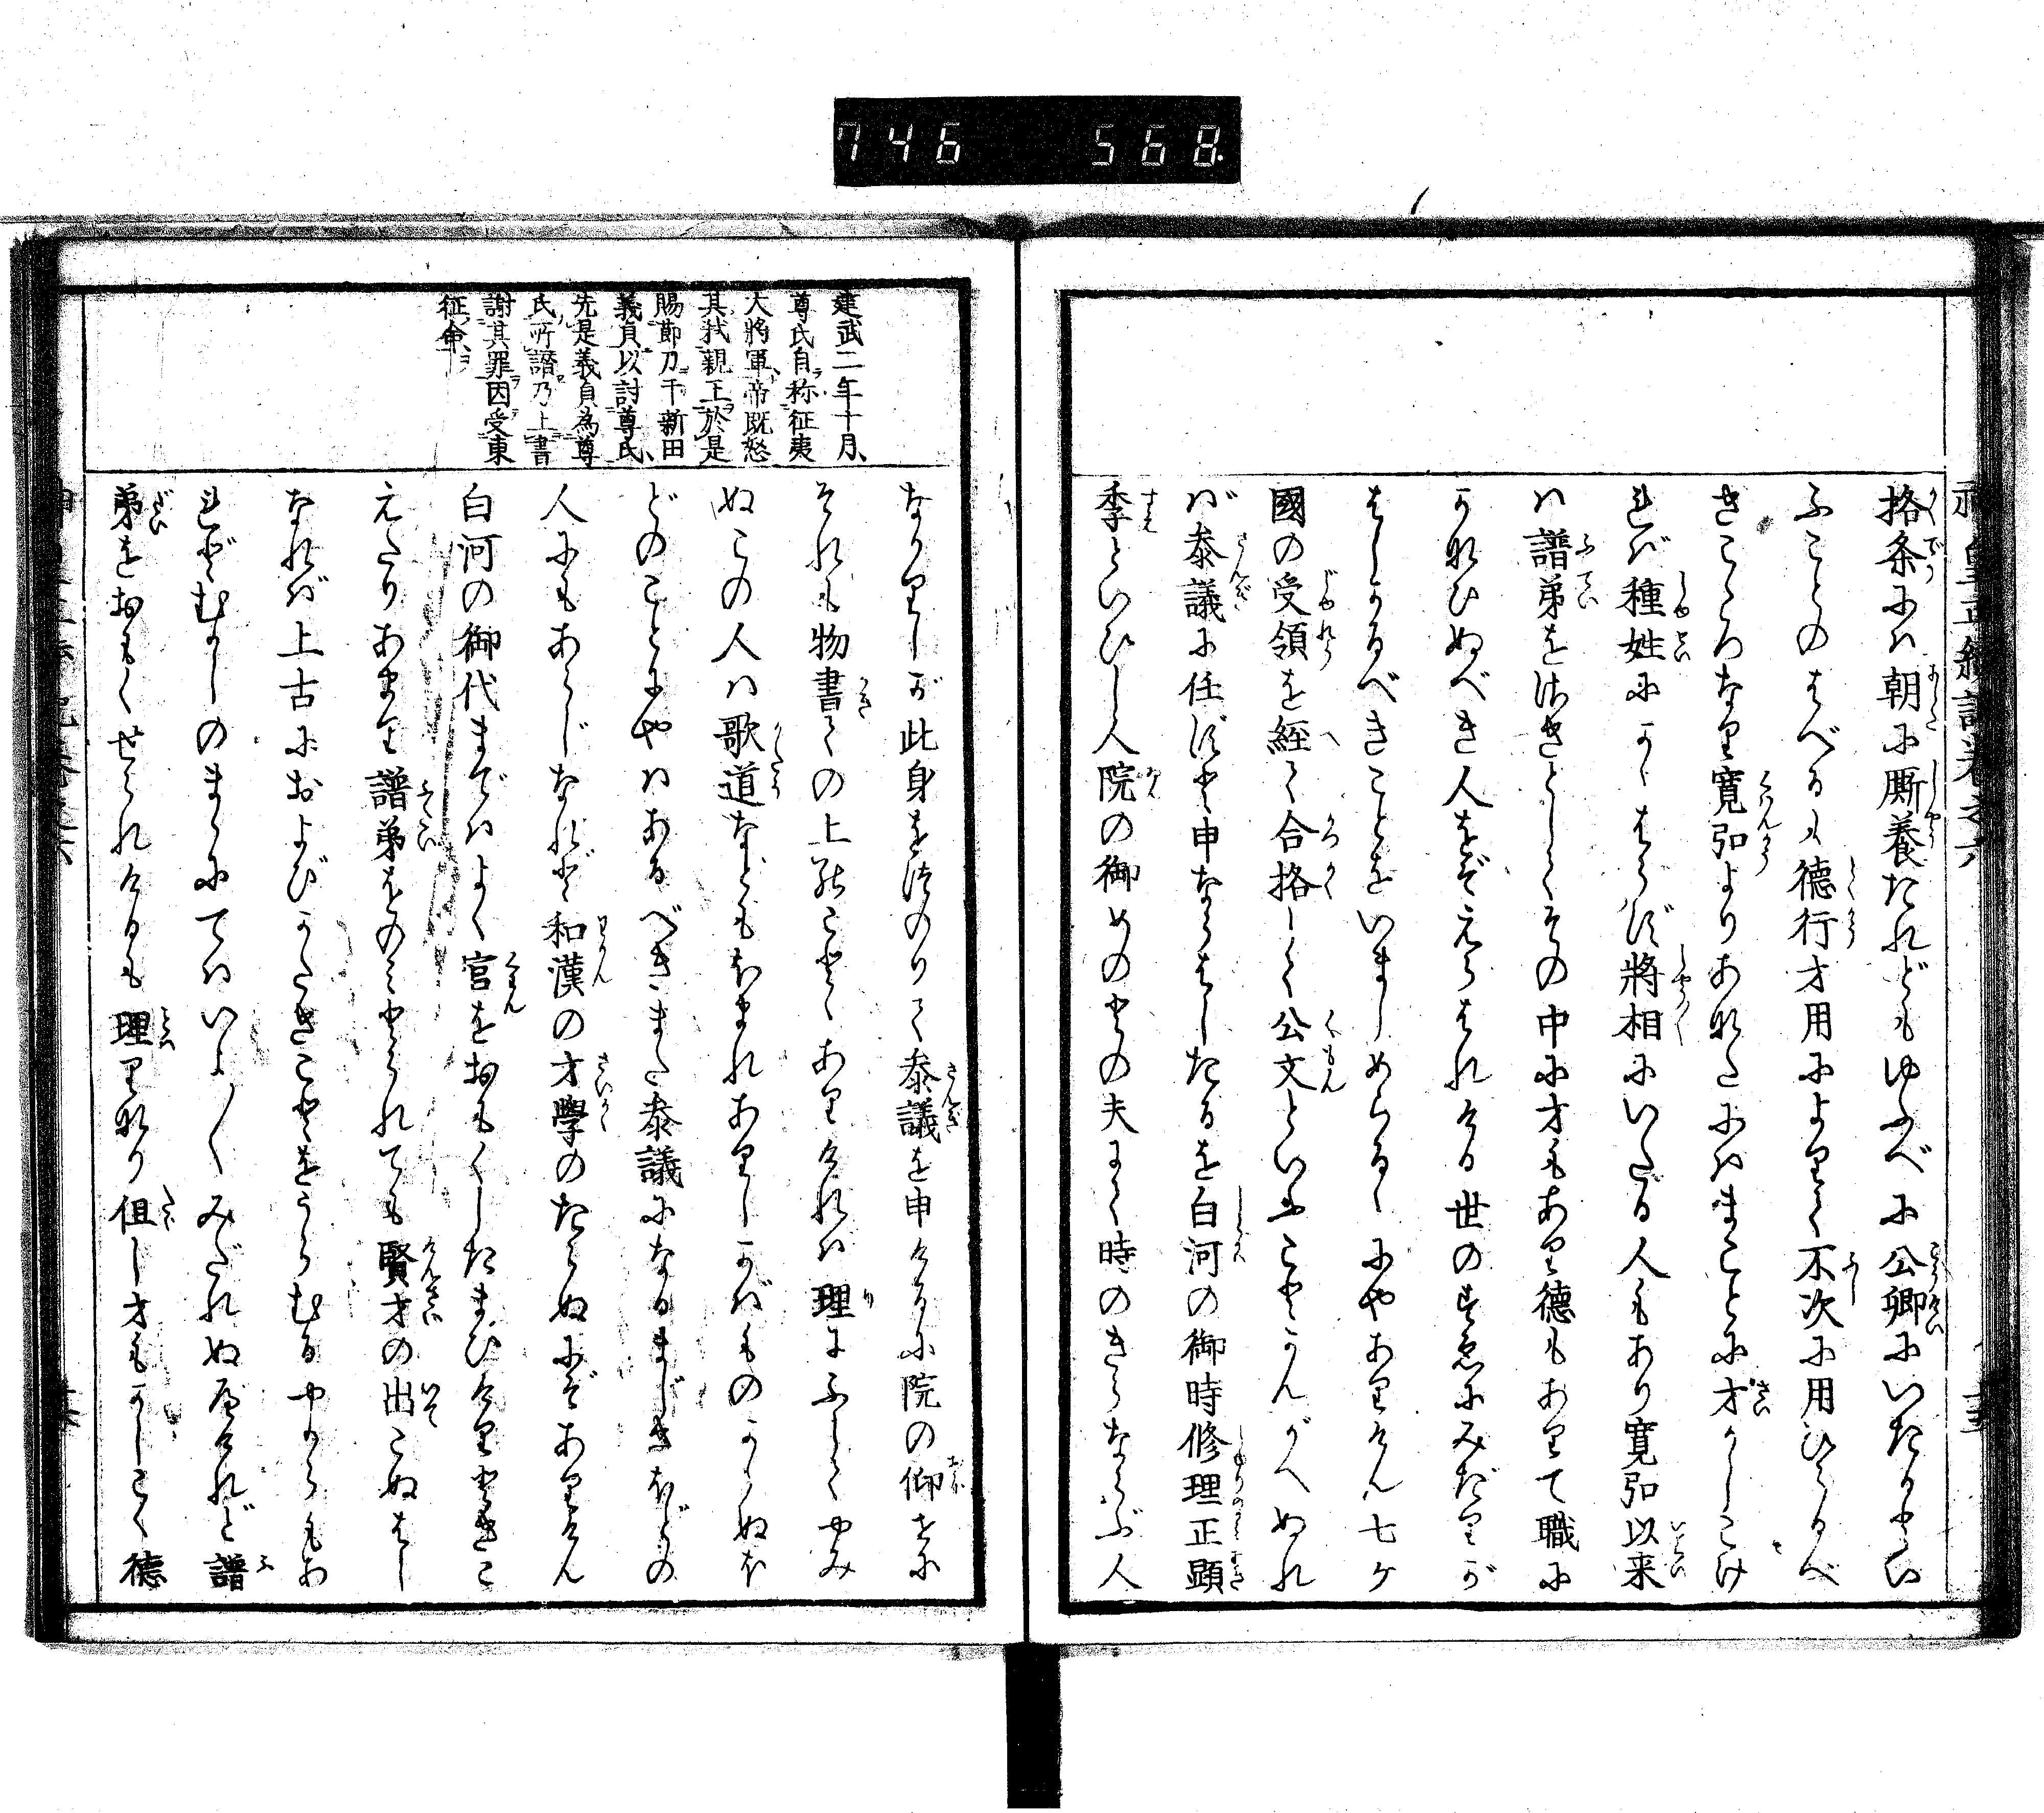 746 568
神皇正統記巻之六
格条には朝に廝養たれどもゆふべに公卿にいたるとい
ふことのはべるも德行才用によりて不次に用ひらるべ
きこゝろなり寛弘よりあなたにはまことに才かしこけ
れば種姓にかゝはらず將相にいたる人もあり寛弘以来
は譜弟をさきとしてその中に才もあり德もありて職に
かなひぬべき人をぞえらはれける世のすゑにみだりが
はしかるべきことをいましめらるゝにやありけん七ケ
國の受領を經て合格して公文といふことかんがへぬれ
ば叅議に任ずと申ならはしたるを白河の御時修理正顕
季といひし人院の御めのとの夫にて時のきらならぶ人
なかりしが此身をつのりて叅議を申けるに院の仰せに
それも物書ての上のことゝありければ理にふしてやみ
ぬこの人は歌道などもほまれありしかばものかゝぬほ
どのことにやはあるべきまた叅議になるまじきほどの
人にもあらじなれど和漢の才學のたらぬにぞありけん
白河の御代まではよく官をおもくしたまひけりときこ
えたりあまり譜弟をのみとられても賢才の出こぬはし
なれば上古におよびがたきことをうらむるやからもあ
れどむかしのまゝにてはいよ〳〵みだれぬべければ譜
弟をおもくせられけるも理りなり但し才もかしこく德
建武二年十月、
尊氏自称征夷
大將軍、帝既怒
其弑親王於是
賜節刀于新田
義貞以討尊氏、
先是義貞為尊
氏所譖乃上書
謝其罪因受東
征命、